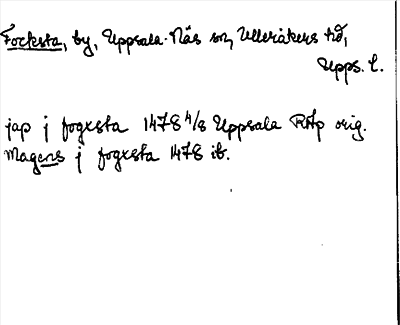 Focksta, by, Uppsala-Näs sn, Ulleråkers hd,
Upps. l.
jap j fogxsta 1478 4/8 Uppsala RAp orig.
magens j fogxsta 1478 ib.